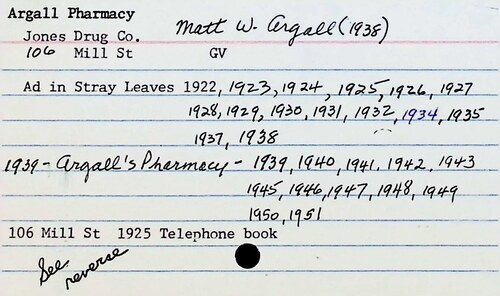 Argall Pharmacy
Matt W. Argall (1938)
Jones Drug Co.
106 Mill St GV
Ad in Stray Leaves 1922, 1923, 1924, 1925, 1926, 1927
1928, 1929, 1930, 1931, 1932, 1934, 1935
1937, 1938
1939 - Argall's Pharmacy - 1939, 1940, 1941, 1942, 1943
1945, 1946, 1947, 1948, 1949
1950, 1951
106 Mill St 1925 Telephone book
See
reverse